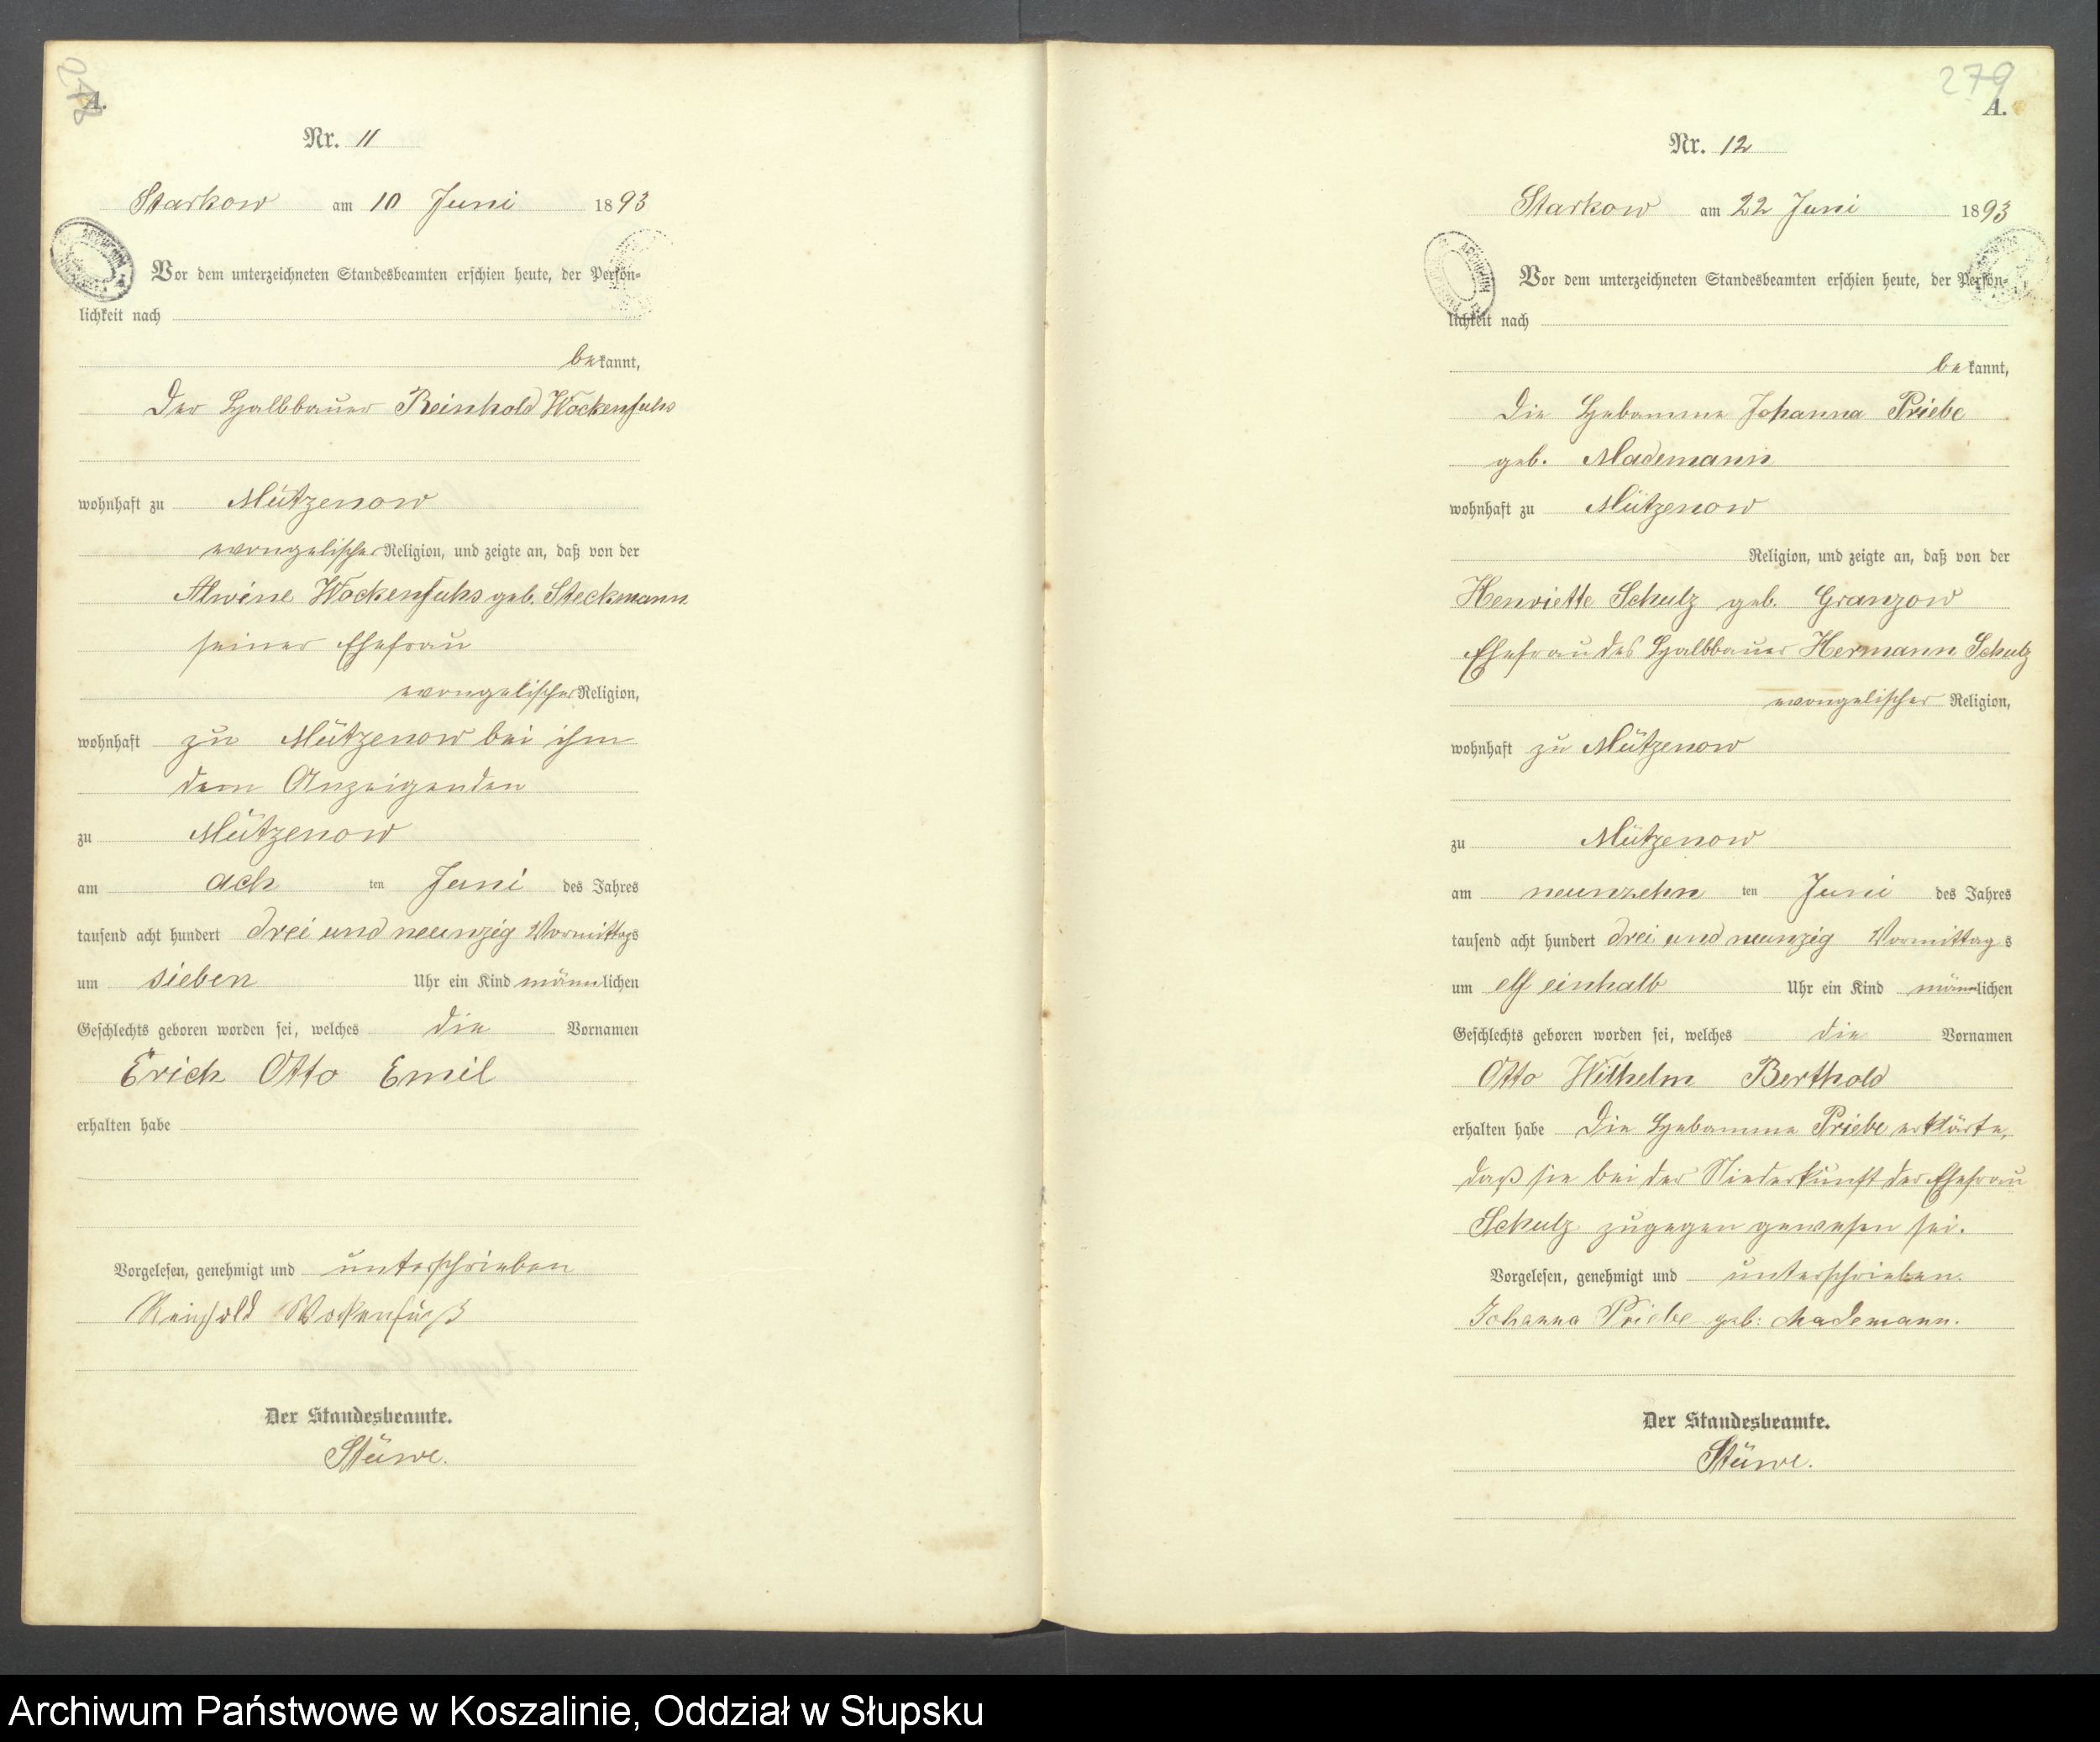 278
A.
Nr. 11
Starkow am 10 Juni 1893
Vor dem unterzeichneten Standesbeamten erschien heute, der Persön-
lichkeit nach
bekannt,
der Halbbauer Reinhold Wockenfuhs
wohnhaft zu Mützenow
evangelischer Religion, und zeigte an, daß von der
Alwine Wockenfuhs geb. Steckmann
seiner Ehefrau
evangelischer Religion,
wohnhaft zu Mützenow bei ihm
dem Anzeigenden
zu Mützenow
am ach ten Juni des Jahres
tausend acht hundert drei und neunzig Vormittags
um sieben Uhr ein Kind männlichen
Geschlechts geboren worden sei, welches die Vornamen
Erich Otto Emil
erhalten habe
Vorgelesen, genehmigt und unterschrieben
Reinhold Wockenfuß
Der Standesbeamte.
Stüwe.
279
A.
Nr. 12
Starkow am 22 Juni 1893
Vor dem unterzeichneten Standesbeamten erschien heute, der Persön-
lichkeit nach
bekannt,
die Hebamme Johanna Priebe
geb. Mademann
wohnhaft zu Mützenow
Religion, und zeigte an, daß von der
Henriette Schulz geb. Granzow
Ehefrau des Halbbauer Hermann Schulz
evangelischer Religion,
wohnhaft zu Mützenow
zu Mützenow
am neunzehn ten Juni des Jahres
tausend acht hundert drei und neunzig Vormittags
um elf einhalb Uhr ein Kind männlichen
Geschlechts geboren worden sei, welches die Vornamen
Otto Wilhelm Berthold
erhalten habe Die Hebamme Priebe erklärte,
daß sie bei der Niederkunft der Ehefrau
Schulz zugegen gewesen sei.
Vorgelesen, genehmigt und unterschrieben.
Johanna Priebe geb: Mademann.
Der Standesbeamte.
Stüwe.
Archiwum Państwowe w Koszalinie, Oddział w Słupsku